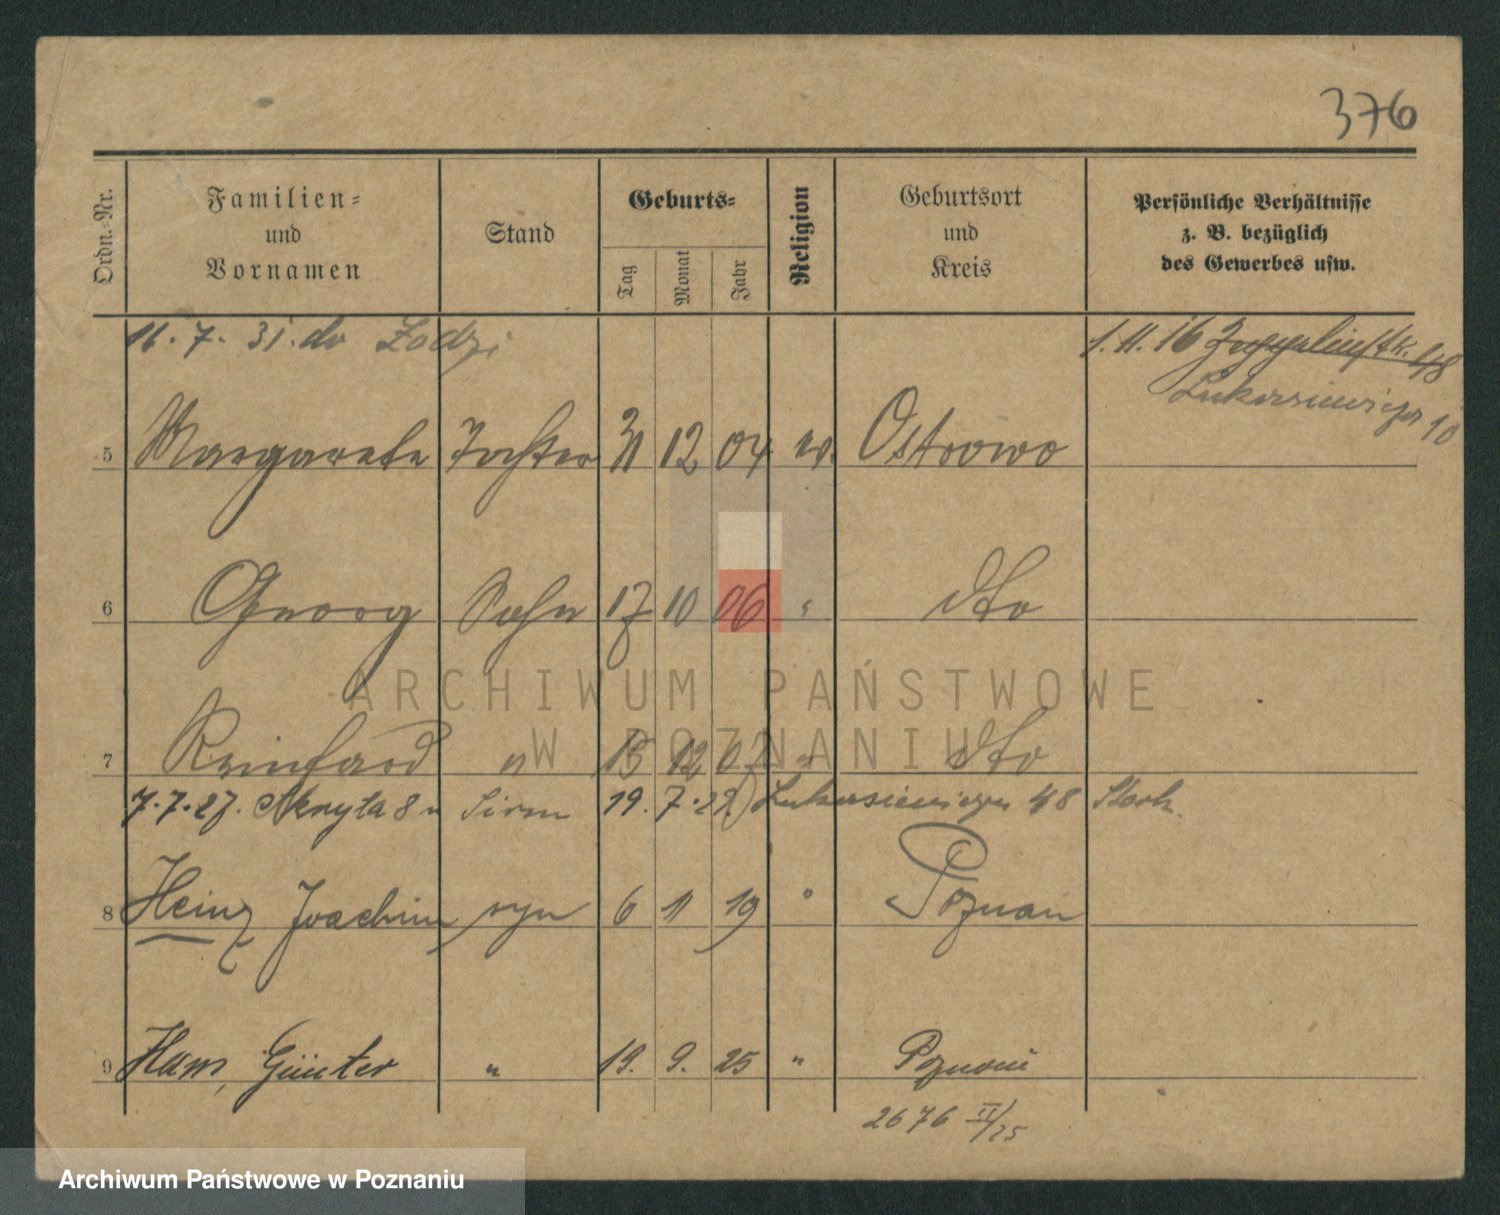 376
Ordn.-Nr.
Familien-
und
Vornamen
Stand
Geburts-
Tag
Monat
Jahr
Religion
Geburtsort
und
Kreis
Persönliche Verhältnisse
z. B. bezüglich
des Gewerbes usw.
11. 7. 31. do Łodzi
1. 11. 16
10
5 Margarete Tochter 31 12 04 ev. Ostrowo
6 Georg Sohn 17 10 06 " dto
7 Reinhard " 15 12 07 " dto
7.7.27. 19. 7. 22
8 Heinz Joachim syn 6 11 19 " Poznań
9 Hans, Günter " 19. 9. 25 " Poznań
2676 II/25
ARCHIWUM PAŃSTWOWE
W POZNANIU
Archiwum Państwowe w Poznaniu